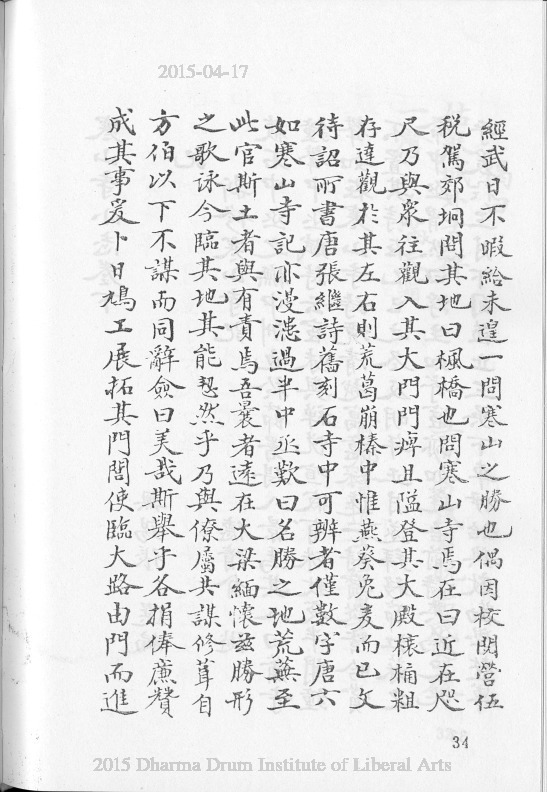 2015-04-17
經武日不暇給未遑一問寒山之勝也偶因校閱營伍
稅駕郊坰問其地曰楓橋也問寒山寺焉在曰近在咫
尺乃與衆往觀入其大門門痺且隘登其大殿榱桷粗
存達觀於其左右則荒葛崩榛中惟燕葵兔麦而已文
待詔所書唐張繼詩舊刻石寺中可辨者僅數字唐六
如寒山寺記亦漫漶過半中丞歎曰名勝之地荒蕪至
此官斯土者與有責焉吾曩者遠在大梁緬懷兹勝形
之歌詠今臨其地其能恝然乎乃與僚屬共謀修葺自
方伯以下不謀而同辭僉曰美哉斯舉乎各捐俸廉贊
成其事爰卜日鳩工展拓其門閭使臨大路由門而進
34
2015 Dharma Drum Institute of Liberal Arts